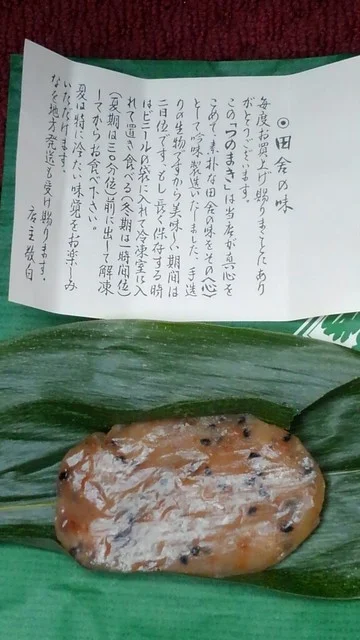 ◉田舎の味
毎度お買上げ賜りまことにあり
がとうございます。
この「つのまき」は当店が真心を
こめて、素朴な田舎の味をその(心)
として吟味製造いたしました。手造
りの生物ですから美味しい期間は
二日位です。もし長く保存する時
はビニールの袋に入れて冷凍室に入
れて置き食べる(冬期は一時間位)
(夏期は三〇分位)前に出して解凍
してからお食べ下さい。
夏は特に冷たい味覚をお楽しみ
いただけます。
なを地方発送も受け賜ります。
店主敬白